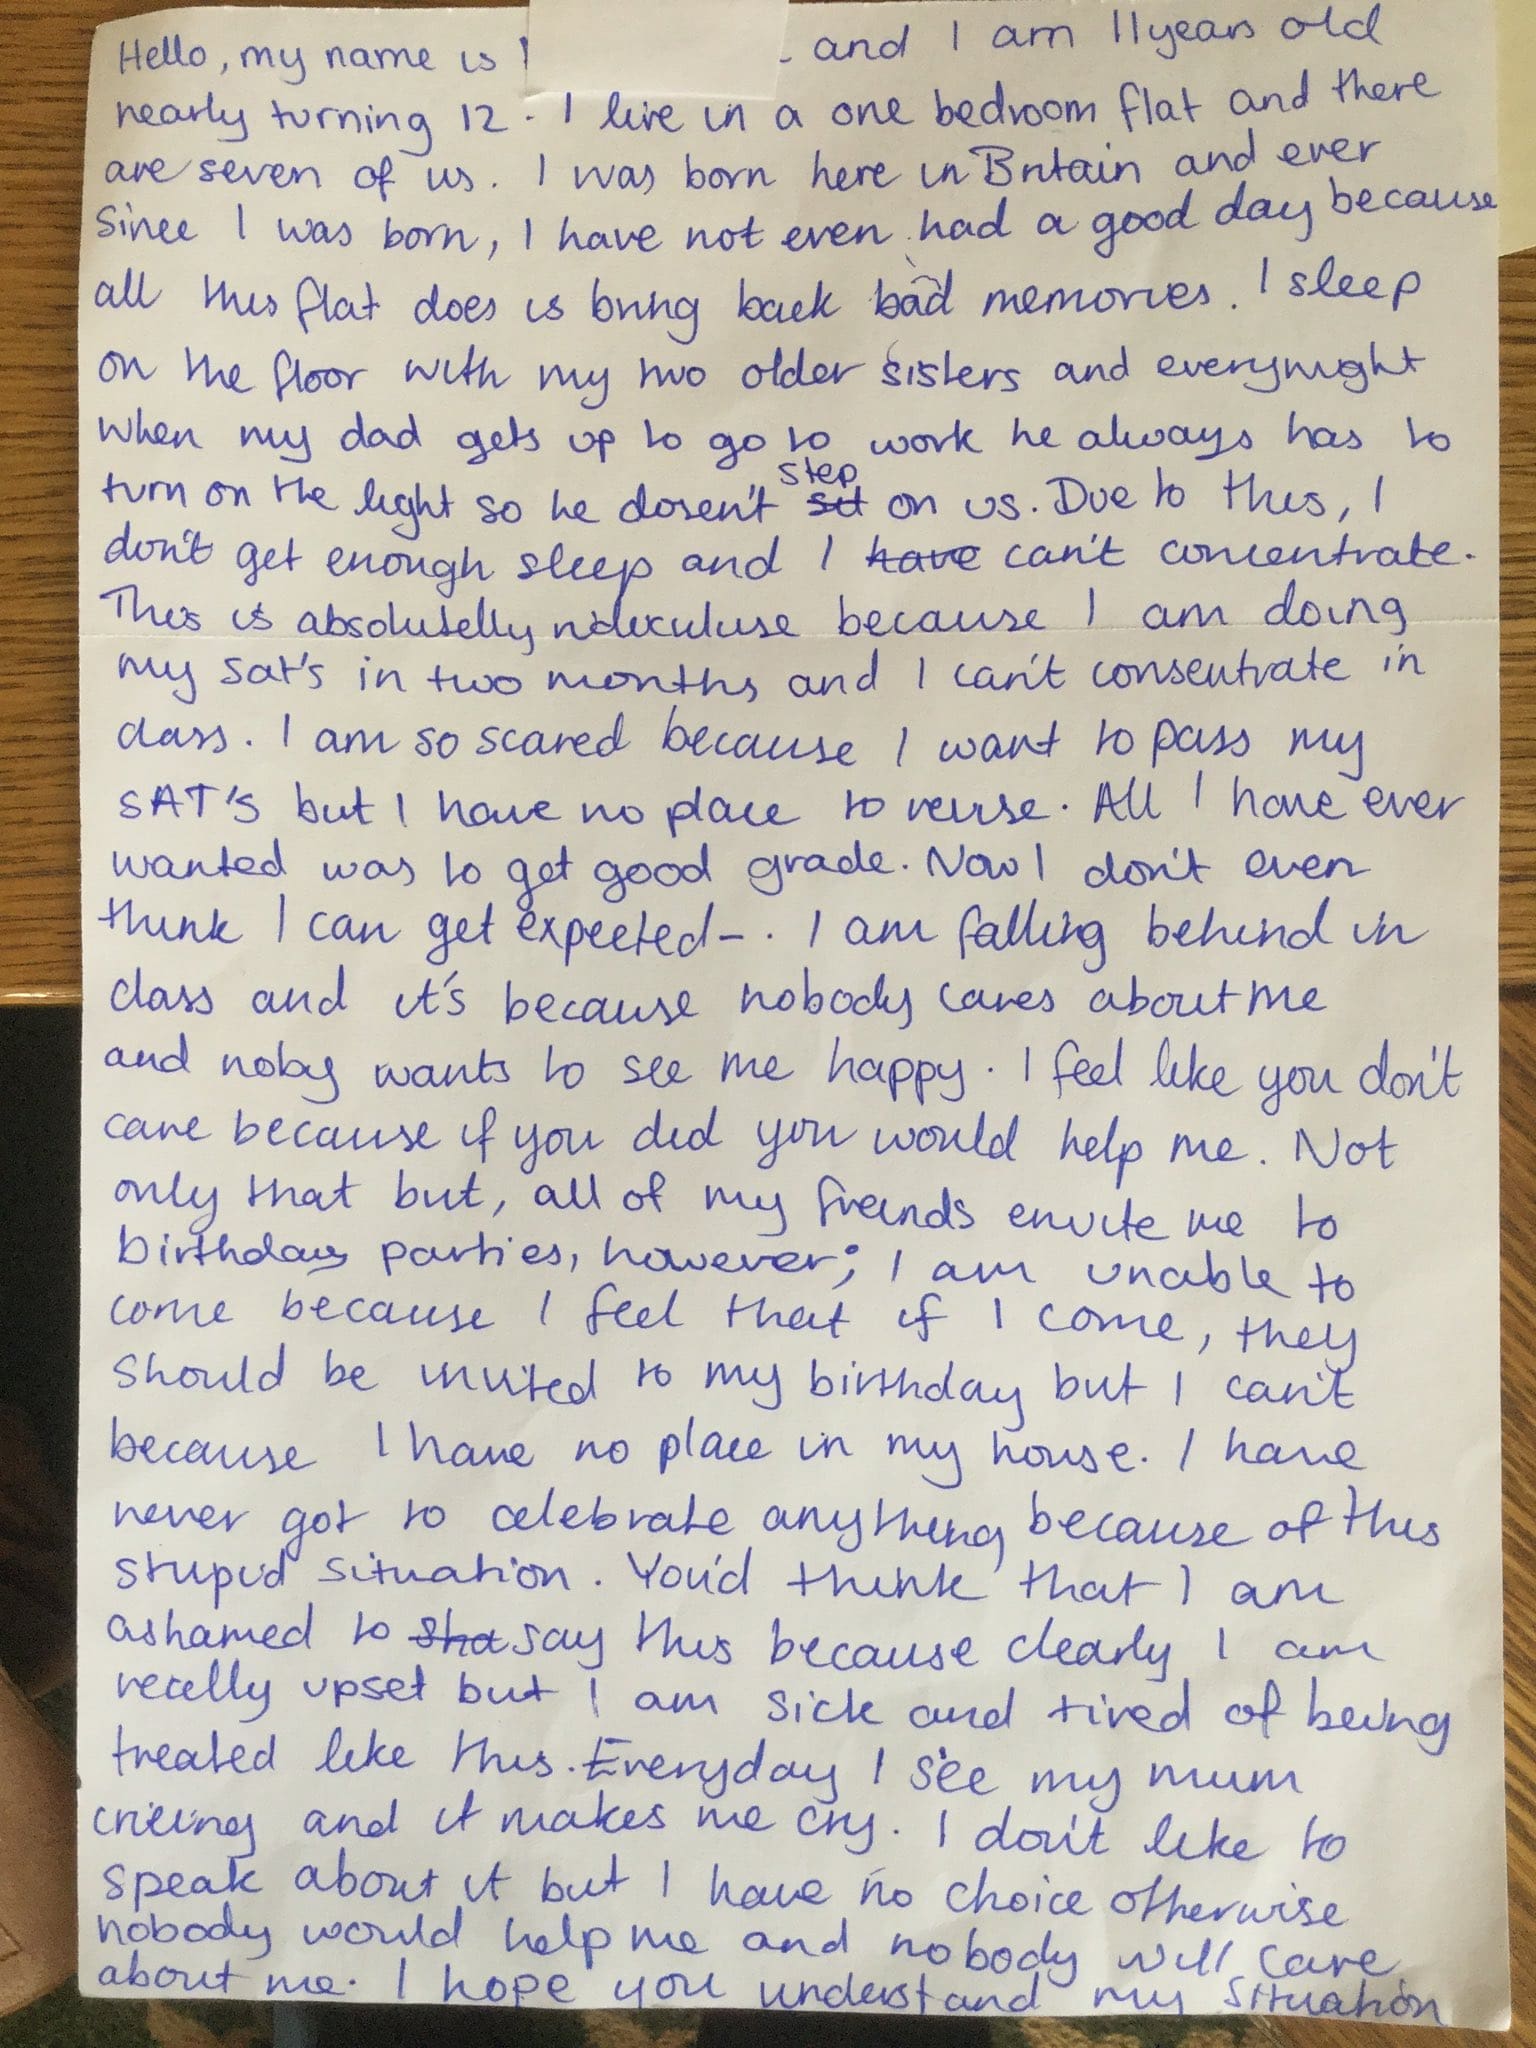 Hello, my name is and I am 11years old
nearly turning 12. I live in a one bedroom flat and there
are seven of us. I was born here in Britain and ever
since I was born, I have not even had a good day because
all this flat does is bring back bad memories. I sleep
on the floor with my two older sisters and everynight
when my dad gets up to go to work he always has to
turn on the light so he dosen't step on us. Due to this, I
don't get enough sleep and I have can't concentrate.
This is absolutelly rideculuse because I am doing
my sat's in two months and I can't consentrate in
class. I am so scared because I want to pass my
SAT's but I have no place to reuise. All I have ever
wanted was to get good grade. Now I don't even
think I can get expected-. I am falling behind in
class and it's because nobody cares about me
and noby wants to see me happy. I feel like you don't
care because if you did you would help me. Not
only that but, all of my freinds envite me to
birthday parties, however; I am unable to
come because I feel that if I come, they
should be invited to my birthday but I can't
because I have no place in my house. I have
never got to celebrate anything because of this
stupid situation. You'd think that I am
ashamed to sha say this because clearly I am
really upset but I am sick and tired of being
treated like this. Everyday I see my mum
crieing and it makes me cry. I don't like to
speak about it but I have no choice otherwise
nobody would help me and nobody will care
about me. I hope you understand my situation